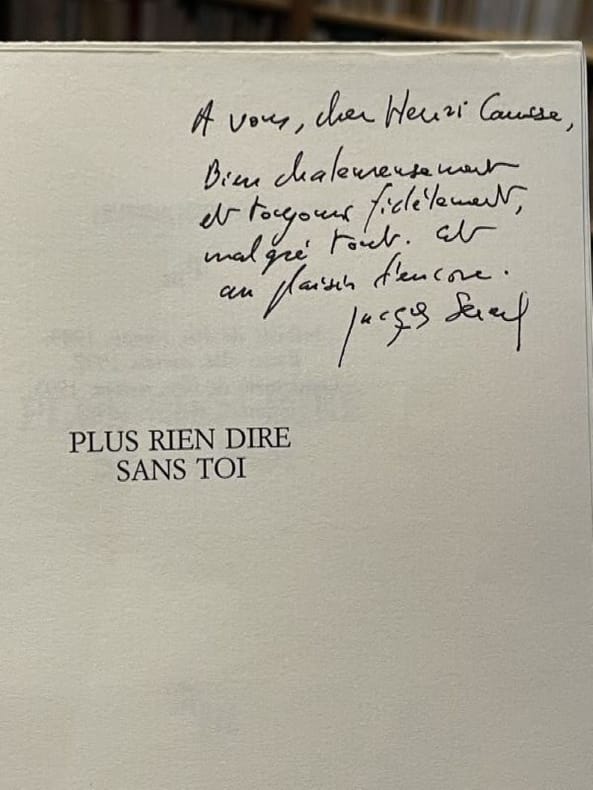 A vous, cher Henri Causse,
Bien chaleureusement
et toujours fidèlement,
malgré tout. et
au plaisir d'encore.
Jacques Serena
PLUS RIEN DIRE
SANS TOI